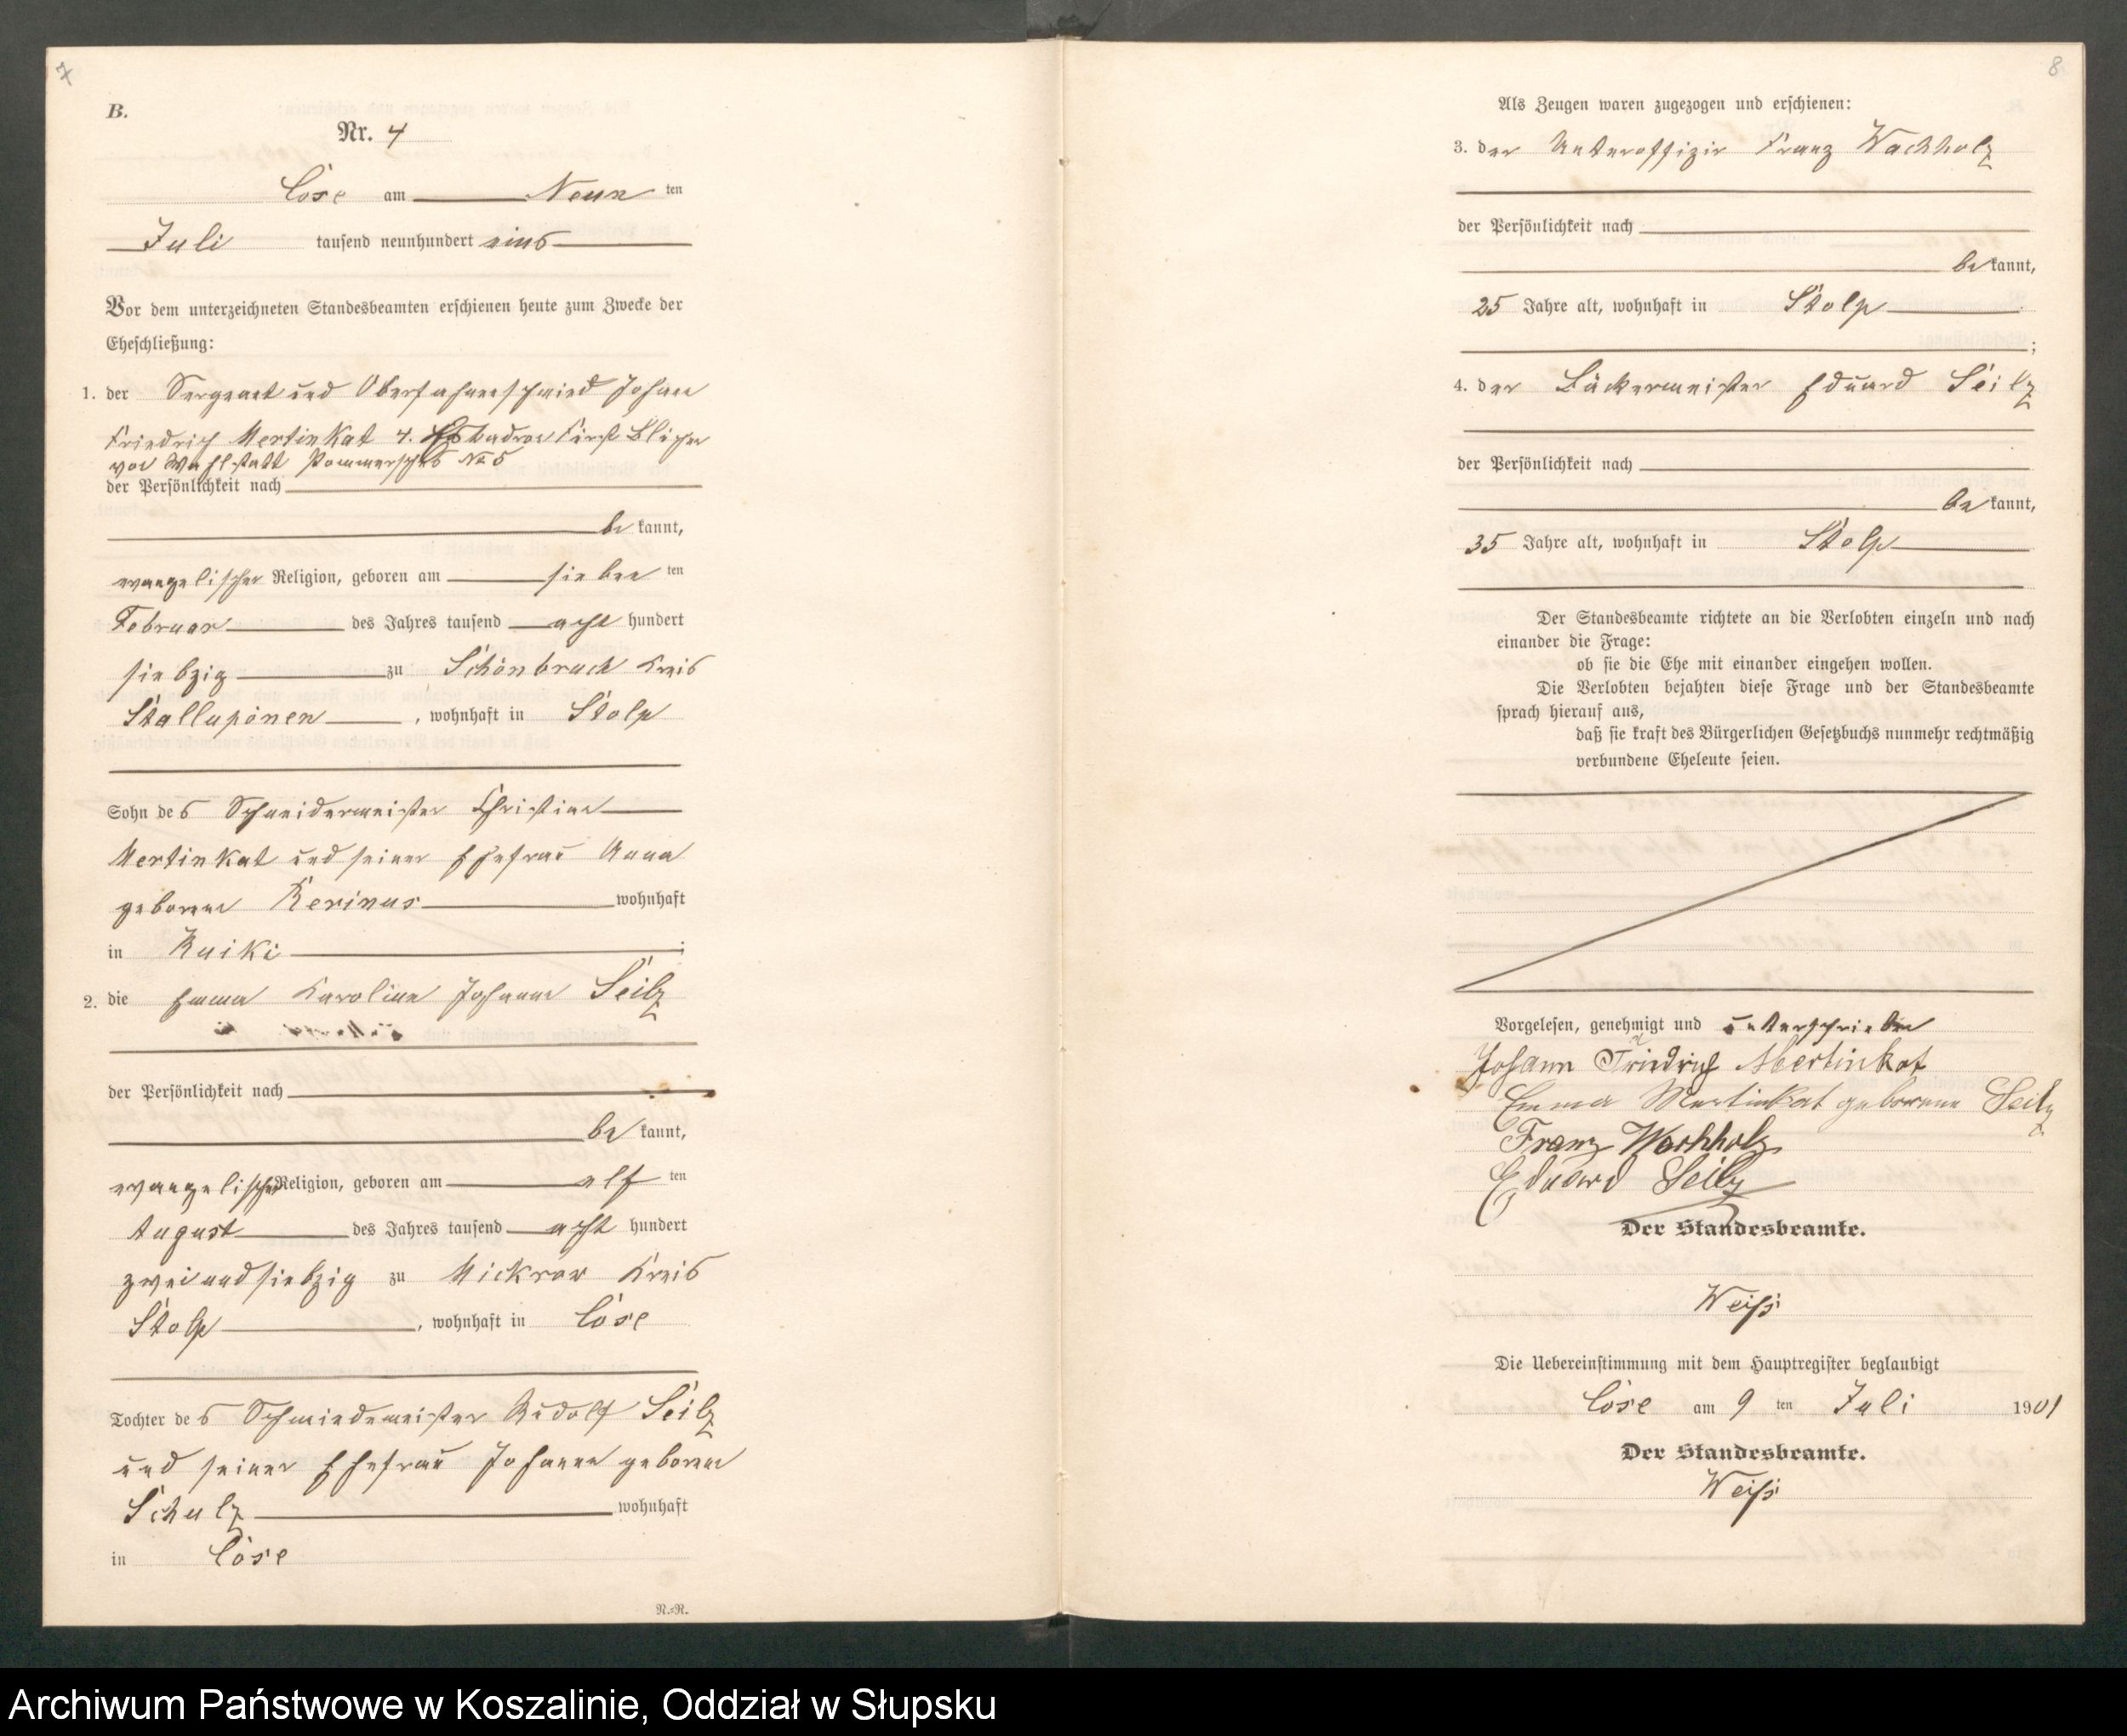 7
B.
Nr. 4
Cöse am Neun ten
Juli tausend neunhundert eins
Vor dem unterzeichneten Standesbeamten erschienen heute zum Zwecke der
Eheschließung:
1. der Sergeant und Oberfahnenschmied Johann
Friedrich Mertinkat 4. Esk Husaren Fürst Blücher
von Wahlstatt Pommersches No 5
der Persönlichkeit nach
be kannt,
evangelischer Religion, geboren am sieben ten
Februar des Jahres tausend acht hundert
siebzig zu Schönbruch Kreis
Stallupönen, wohnhaft in Stolp
Sohn des Schneidermeister Christian
Mertinkat und seiner Ehefrau Anna
geborene Kerinus wohnhaft
in Ruiki;
2. die Emma Karoline Johanne Seilz
der Persönlichkeit nach
be kannt,
evangelischer Religion, geboren am elf ten
August des Jahres tausend acht hundert
zweiundsiebzig zu Mickrow Kreis
Stolp, wohnhaft in Cöse
Tochter des Schmiedemeister Rudolf Seilz
und seiner Ehefrau Johanne geborene
Schulz wohnhaft
in Cöse
N.-R.
8
Als Zeugen waren zugezogen und erschienen:
3. der Unteroffizir Franz Wachholz
der Persönlichkeit nach
be kannt,
25 Jahre alt, wohnhaft in Stolp
;
4. der Bäckermeister Eduard Seilz
der Persönlichkeit nach
be kannt,
35 Jahre alt, wohnhaft in Stolp
Der Standesbeamte richtete an die Verlobten einzeln und nach
einander die Frage:
ob sie die Ehe mit einander eingehen wollen.
Die Verlobten bejahten diese Frage und der Standesbeamte
sprach hierauf aus,
daß sie kraft des Bürgerlichen Gesetzbuchs nunmehr rechtmäßig
verbundene Eheleute seien.
Vorgelesen, genehmigt und unterschrieben
Johann Friedrich Mertinkat
Emma Mertinkat geborene Seilz
Franz Wachholz
Eduard Seilz
Der Standesbeamte.
Weiß
Die Uebereinstimmung mit dem Hauptregister beglaubigt
Cöse am 9 ten Juli 1901
Der Standesbeamte.
Weiß
Archiwum Państwowe w Koszalinie, Oddział w Słupsku